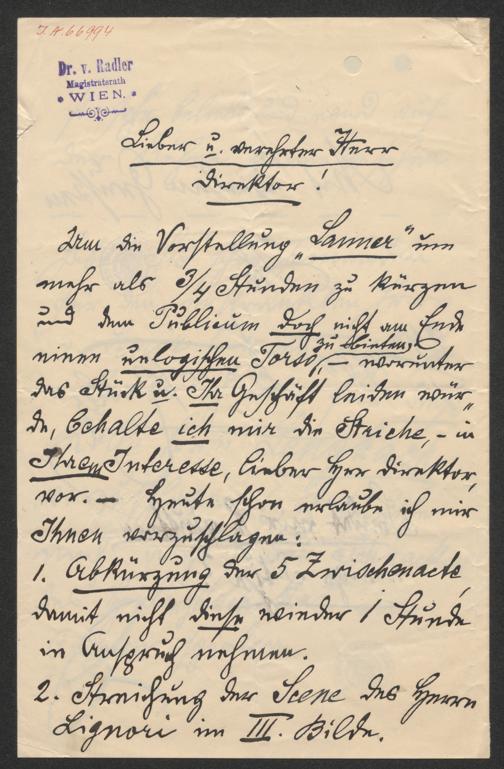 J.N. 66994
Dr. v. Radler
Magistratsrath
WIEN.
Lieber u. verehrter Herr
Direktor!
Um die Vorstellung „Lanner" um
mehr als 3/4 Stunden zu kürzen
und dem Publicum doch nicht am Ende
einen unlogischen Torso, – worunter
zu bieten
das Stück u. Ihr Geschäft leiden wür„
de, behalte ich mir die Striche, – in
Ihrem Interesse, lieber Herr Direktor,
vor. – Heute schon erlaube ich mir
Ihnen vorzuschlagen:
1. Abkürzung der 5 Zwischenacte,
damit nicht diese wieder 1 Stunde
in Anspruch nehmen.
2. Streichung der Scene des Herrn
Lignori im III. Bilde.